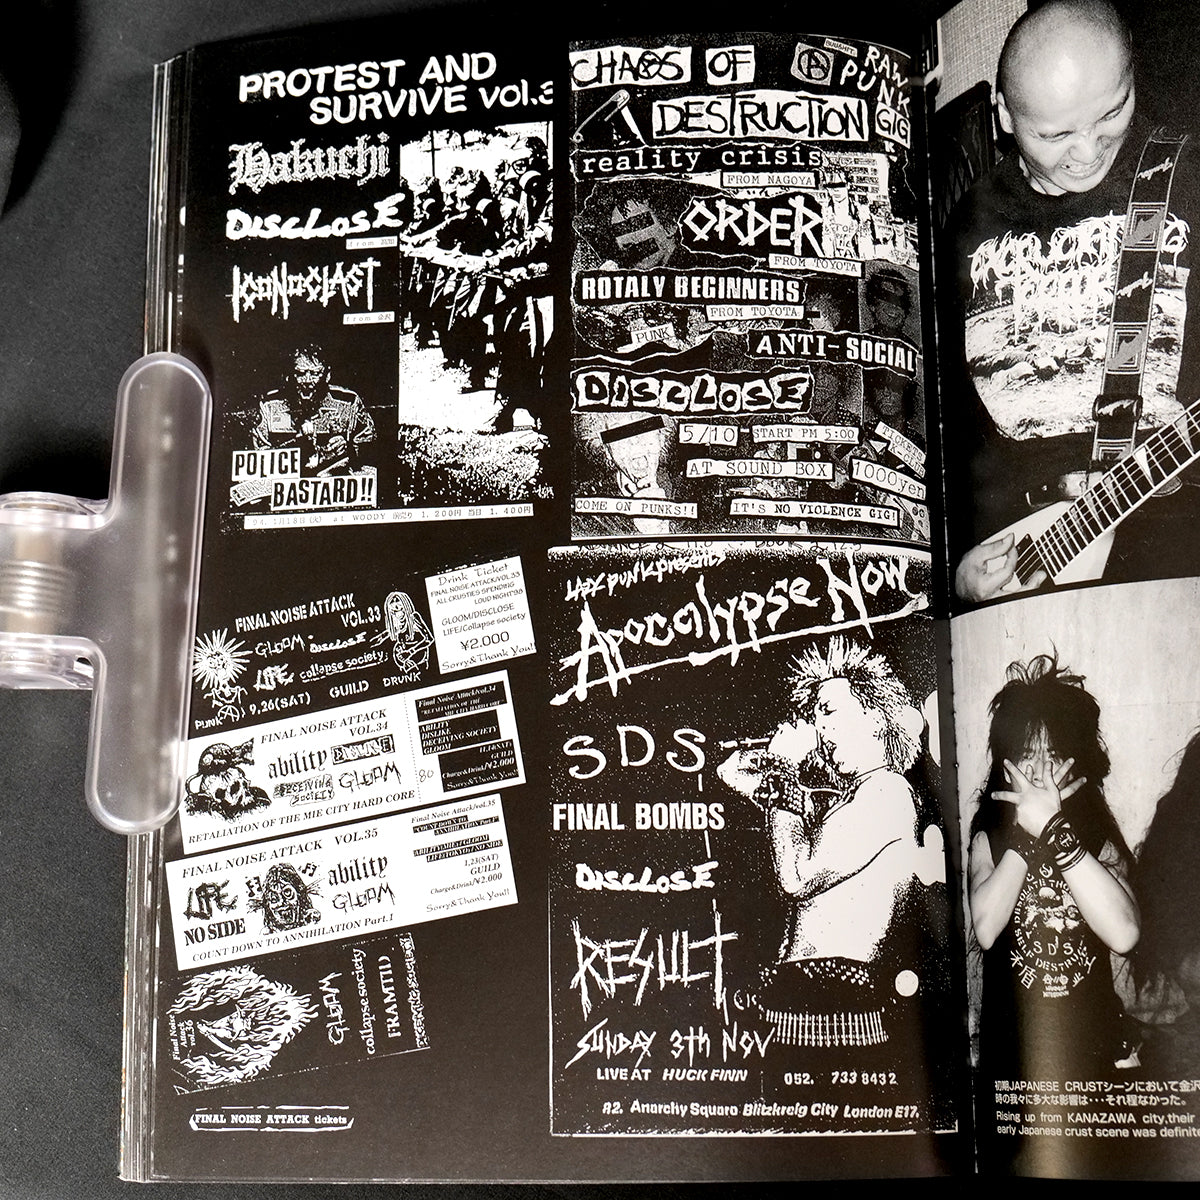 PROTEST AND
SURVIVE VOL.3
Hakuchi
DISCLOSE
ICONOCLAST
POLICE
BASTARD!!
at WOODY 前売り 1.200円 当日 1.400円
CHAOS OF
DESTRUCTION
RAW
PUNK
GIG
reality crisis
FROM NAGOYA
ORDER
FROM TOYOTA
ROTALY BEGINNERS
FROM TOYOTA
PUNK
ANTI-SOCIAL
DISCLOSE
5/10 START PM 5:00
AT SOUND BOX
1000yen
COME ON PUNKS!!
IT'S NO VIOLENCE GIG!
FINAL NOISE ATTACK
VOL.33
GLOOM DISCLOSE
LIFE collapse society
PUNK 9,26(SAT) GUILD DRUNK
Drink Ticket
FINAL NOISE ATTACK/VOL.33
ALL CRUSTIES SPENDING
LOUD NIGHT'98
GLOOM/DISCLOSE
LIFE/Collapse society
¥2.000
Sorry&Thank You!
FINAL NOISE ATTACK
VOL.34
ability DISLIKE
DECEIVING
SOCIETY
GLOOM
RETALIATION OF THE MIE CITY HARD CORE
80
Final Noise Attack/vol.34
"RETALIATION OF THE
MIE CITY HARD CORE"
ABILITY
DISLIKE
DECEIVING SOCIETY
GLOOM
11,14(SAT)
GUILD
Charge&Drink/¥2.000
Sorry&Thank You!!
FINAL NOISE ATTACK VOL.35
LIFE
ability
NO SIDE
GLOOM
COUNT DOWN TO ANNIHILATION Part.1
Final Noise Attack/vol.35
"COUNT DOWN TO
ANNIHILATION Part.1"
1,23(SAT)
GUILD
Charge&Drink/¥2.000
Sorry&Thank You!!
Final Noise
Attack
vol.36
GLOOM
collapse society
FRAMTID
FINAL NOISE ATTACK tickets
LAZY PUNK presents
Apocalypse Now
SDS
FINAL BOMBS
DISCLOSE
RESULT
SUNDAY 3th NOV
LIVE AT HUCK FINN 052. 733 8432
82. Anarchy Square Blitzkreig City London E17.
SDS
初期JAPANESE CRUSTシーンにおいて金沢
時の我々に多大な影響は・・・それ程なかった。
Rising up from KANAZAWA city,their
early Japanese crust scene was definite